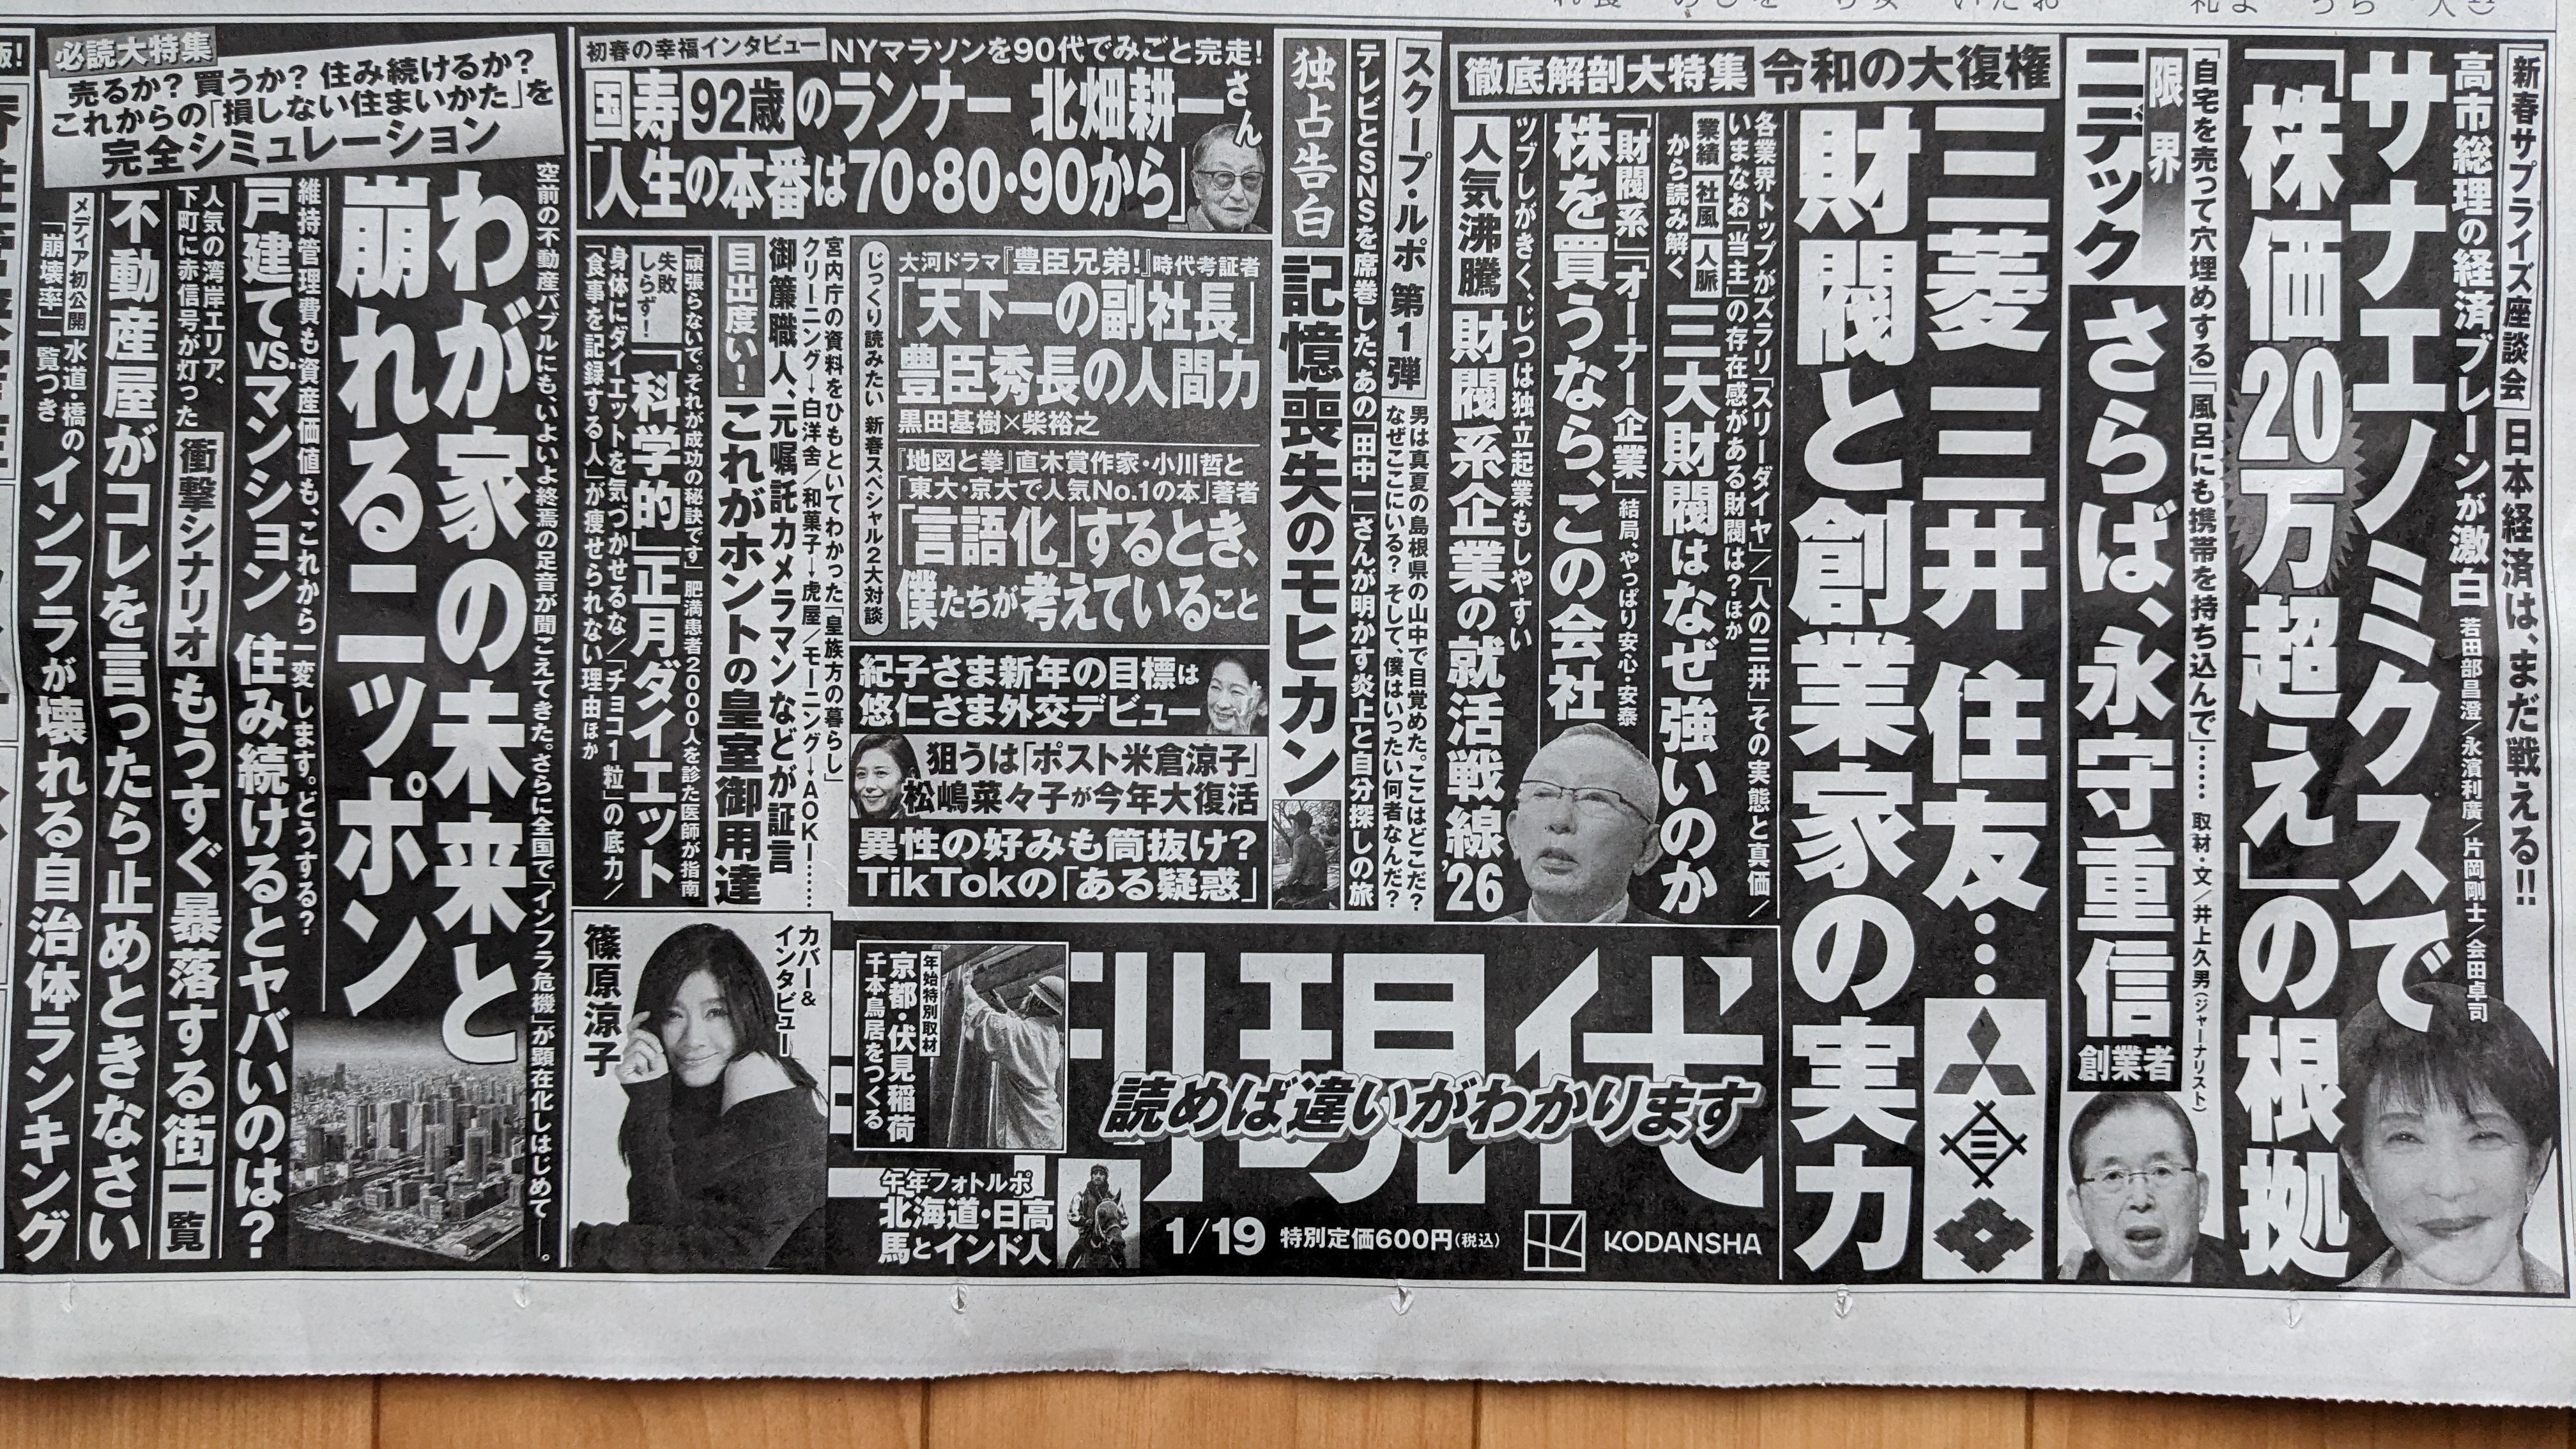 新春サプライズ座談会
日本経済は、まだ戦える!!
高市総理の経済ブレーンが激白
若田部昌澄/永濱利廣/片岡剛士/会田卓司
サナエノミクスで
「株価20万超え」の根拠
「自宅を売って穴埋めする」「風呂にも携帯を持ち込んで」……
取材・文/井上久男(ジャーナリスト)
限界
ニデック
さらば、永守重信
創業者
徹底解剖大特集
令和の大復権
三菱 三井 住友…
財閥と創業家の実力
各業界トップがズラリ「スリーダイヤ」/「人の三井」その実態と真価/
いまなお「当主」の存在感がある財閥は?ほか
業績 社風 人脈
から読み解く
三大財閥はなぜ強いのか
「財閥系」「オーナー企業」
結局、やっぱり安心・安泰
株を買うなら、この会社
ツブしがきく、じつは独立起業もしやすい
人気沸騰
財閥系企業の就活戦線'26
スクープ・ルポ 第1弾
男は真夏の島根県の山中で目覚めた。ここはどこだ?
なぜここにいる? そして、僕はいったい何者なんだ?
テレビとSNSを席巻した、あの「田中一」さんが明かす炎上と自分探しの旅
独占告白
記憶喪失のモヒカン
初春の幸福インタビュー
NYマラソンを90代でみごと完走!
国寿92歳のランナー 北畑耕一さん
「人生の本番は70・80・90から」
大河ドラマ『豊臣兄弟!』時代考証者
「天下一の副社長」
豊臣秀長の人間力
黒田基樹×柴裕之
『地図と拳』直木賞作家・小川哲と
「東大・京大で人気No.1の本」著者
「言語化」するとき、
僕たちが考えていること
じっくり読みたい 新春スペシャル2大対談
紀子さま新年の目標は
悠仁さま外交デビュー
狙うは「ポスト米倉涼子」
松嶋菜々子が今年大復活
異性の好みも筒抜け?
TikTokの「ある疑惑」
宮内庁の資料をひもといてわかった「皇族方の暮らし」
クリーニング→白洋舍/和菓子→虎屋/モーニング→AOKI……
御簾職人、元嘱託カメラマンなどが証言
目出度い!
これがホントの皇室御用達
「頑張らないで。それが成功の秘訣です」肥満患者2000人を診た医師が指南
失敗しらず!
「科学的」正月ダイエット
身体にダイエットを気づかせるな/「チョコ1粒」の底力/
「食事を記録する人」が痩せられない理由ほか
必読大特集
売るか? 買うか? 住み続けるか?
これからの「損しない住まいかた」を
完全シミュレーション
空前の不動産バブルにも、いよいよ終焉の足音が聞こえてきた。さらに全国で「インフラ危機」が顕在化しはじめて――。
わが家の未来と
崩れるニッポン
維持管理費も資産価値も、これから一変します。どうする?
戸建てvs.マンション 住み続けるとヤバいのは?
人気の湾岸エリア、
下町に赤信号が灯った
衝撃シナリオ
もうすぐ暴落する街一覧
不動産屋がコレを言ったら止めときなさい
メディア初公開
水道・橋の
「崩壊率」一覧つき
インフラが壊れる自治体ランキング
カバー&
インタビュー
篠原涼子
年始特別取材
京都・伏見稲荷
千本鳥居をつくる
午年フォトルポ
北海道・日高
馬とインド人
現代
読めば違いがわかります
1/19
特別定価600円(税込)
KODANSHA